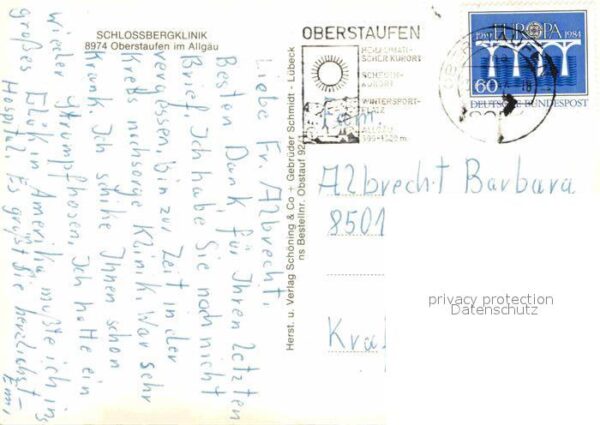 SCHLOSSBERGKLINIK
8974 Oberstaufen im Allgäu
Liebe Fr. Albrecht.
Besten Dank für Ihren letzten
Brief. Ich habe Sie noch nicht
vergessen, bin zur Zeit in der
Krebs nachsorge Klinik. War sehr
Krank. Ich schike Ihnen schon
wieder Strumpfhosen. Ich hatte ein
großes Glük in Amerika mußte ich ins
Hospital. Es grüßt Sie herzlichst
Herst. u. Verlag Schöning & Co + Gebrüder Schmidt - Lübeck
ns Bestellnr. Obstauf 92
OBERSTAUFEN
HEILKLIMATI-
SCHER KURORT
SCHROTH-
KURORT
WINTERSPORT-
PLATZ
ALLGÄU
1959 EUROPA 1984
60
DEUTSCHE BUNDESPOST
Fam.
Albrecht Barbara
8501
privacy protection
Datenschutz